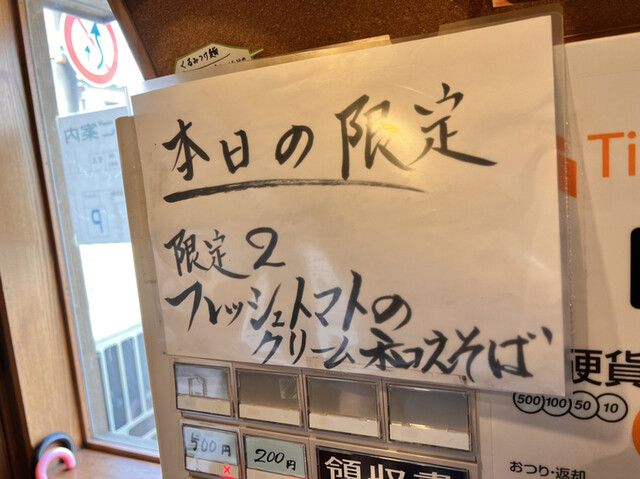 くるみつけ麺
本日の限定
限定2
フレッシュトマトの
クリーム和えそば
ご案内
P
Ti
硬貨
500 100 50 10
おつり・返却
500円
200円
領収書